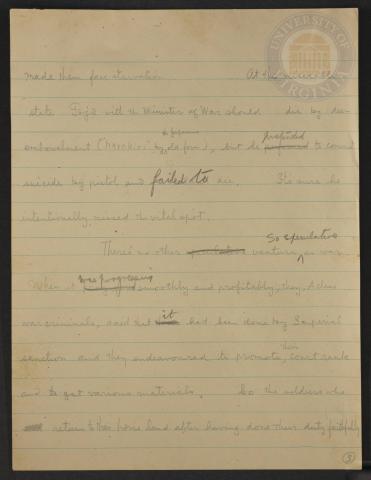 UNIVERSITY OF VIRGINIA
made them face starvation. At
state Tojo with the Minister of War should die by dis-
embowelment (Harakiri by old form), but he preferred to commit
suicide by pistol and failed to die. It's sure he
intentionally missed the vital spot.
There's no other so speculative venture as war.
When it was progressing smoothly and profitably, they, A class
war criminals, said that it had been done by Imperial
sanction and they endeavoured to promote their court rank
and to get various materials. So the soldiers who
return to their home land after having done their duty faithfully
3